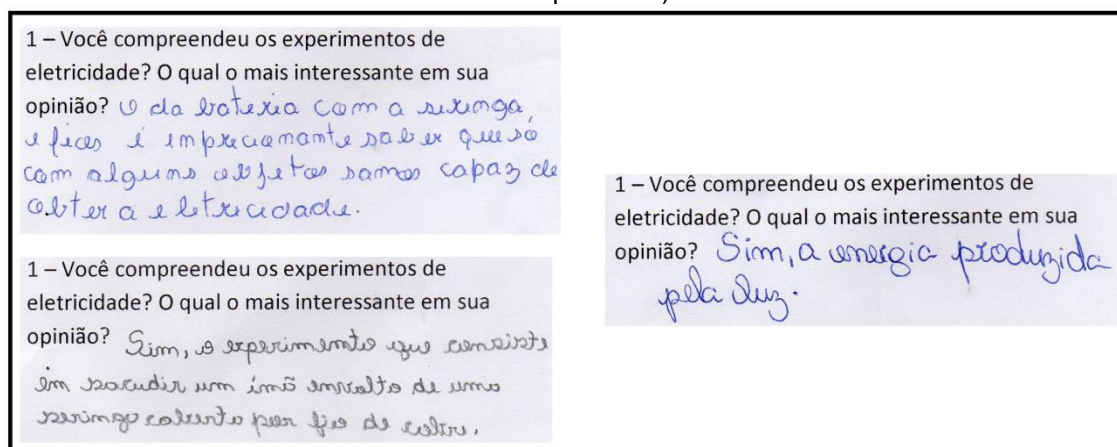 1 – Você compreendeu os experimentos de
eletricidade? O qual o mais interessante em sua
opinião? O da bateria com a siringa,
e ficos é impreciomante saber que só
com alguns objetos samos capaz de
obter a eletricidade.
1 – Você compreendeu os experimentos de
eletricidade? O qual o mais interessante em sua
opinião? Sim, o experimento que consiste
em sacudir um ímã envolto de uma
seringa coberta por fio de cobre.
1 – Você compreendeu os experimentos de
eletricidade? O qual o mais interessante em sua
opinião? Sim, a energia produzida
pela luz.